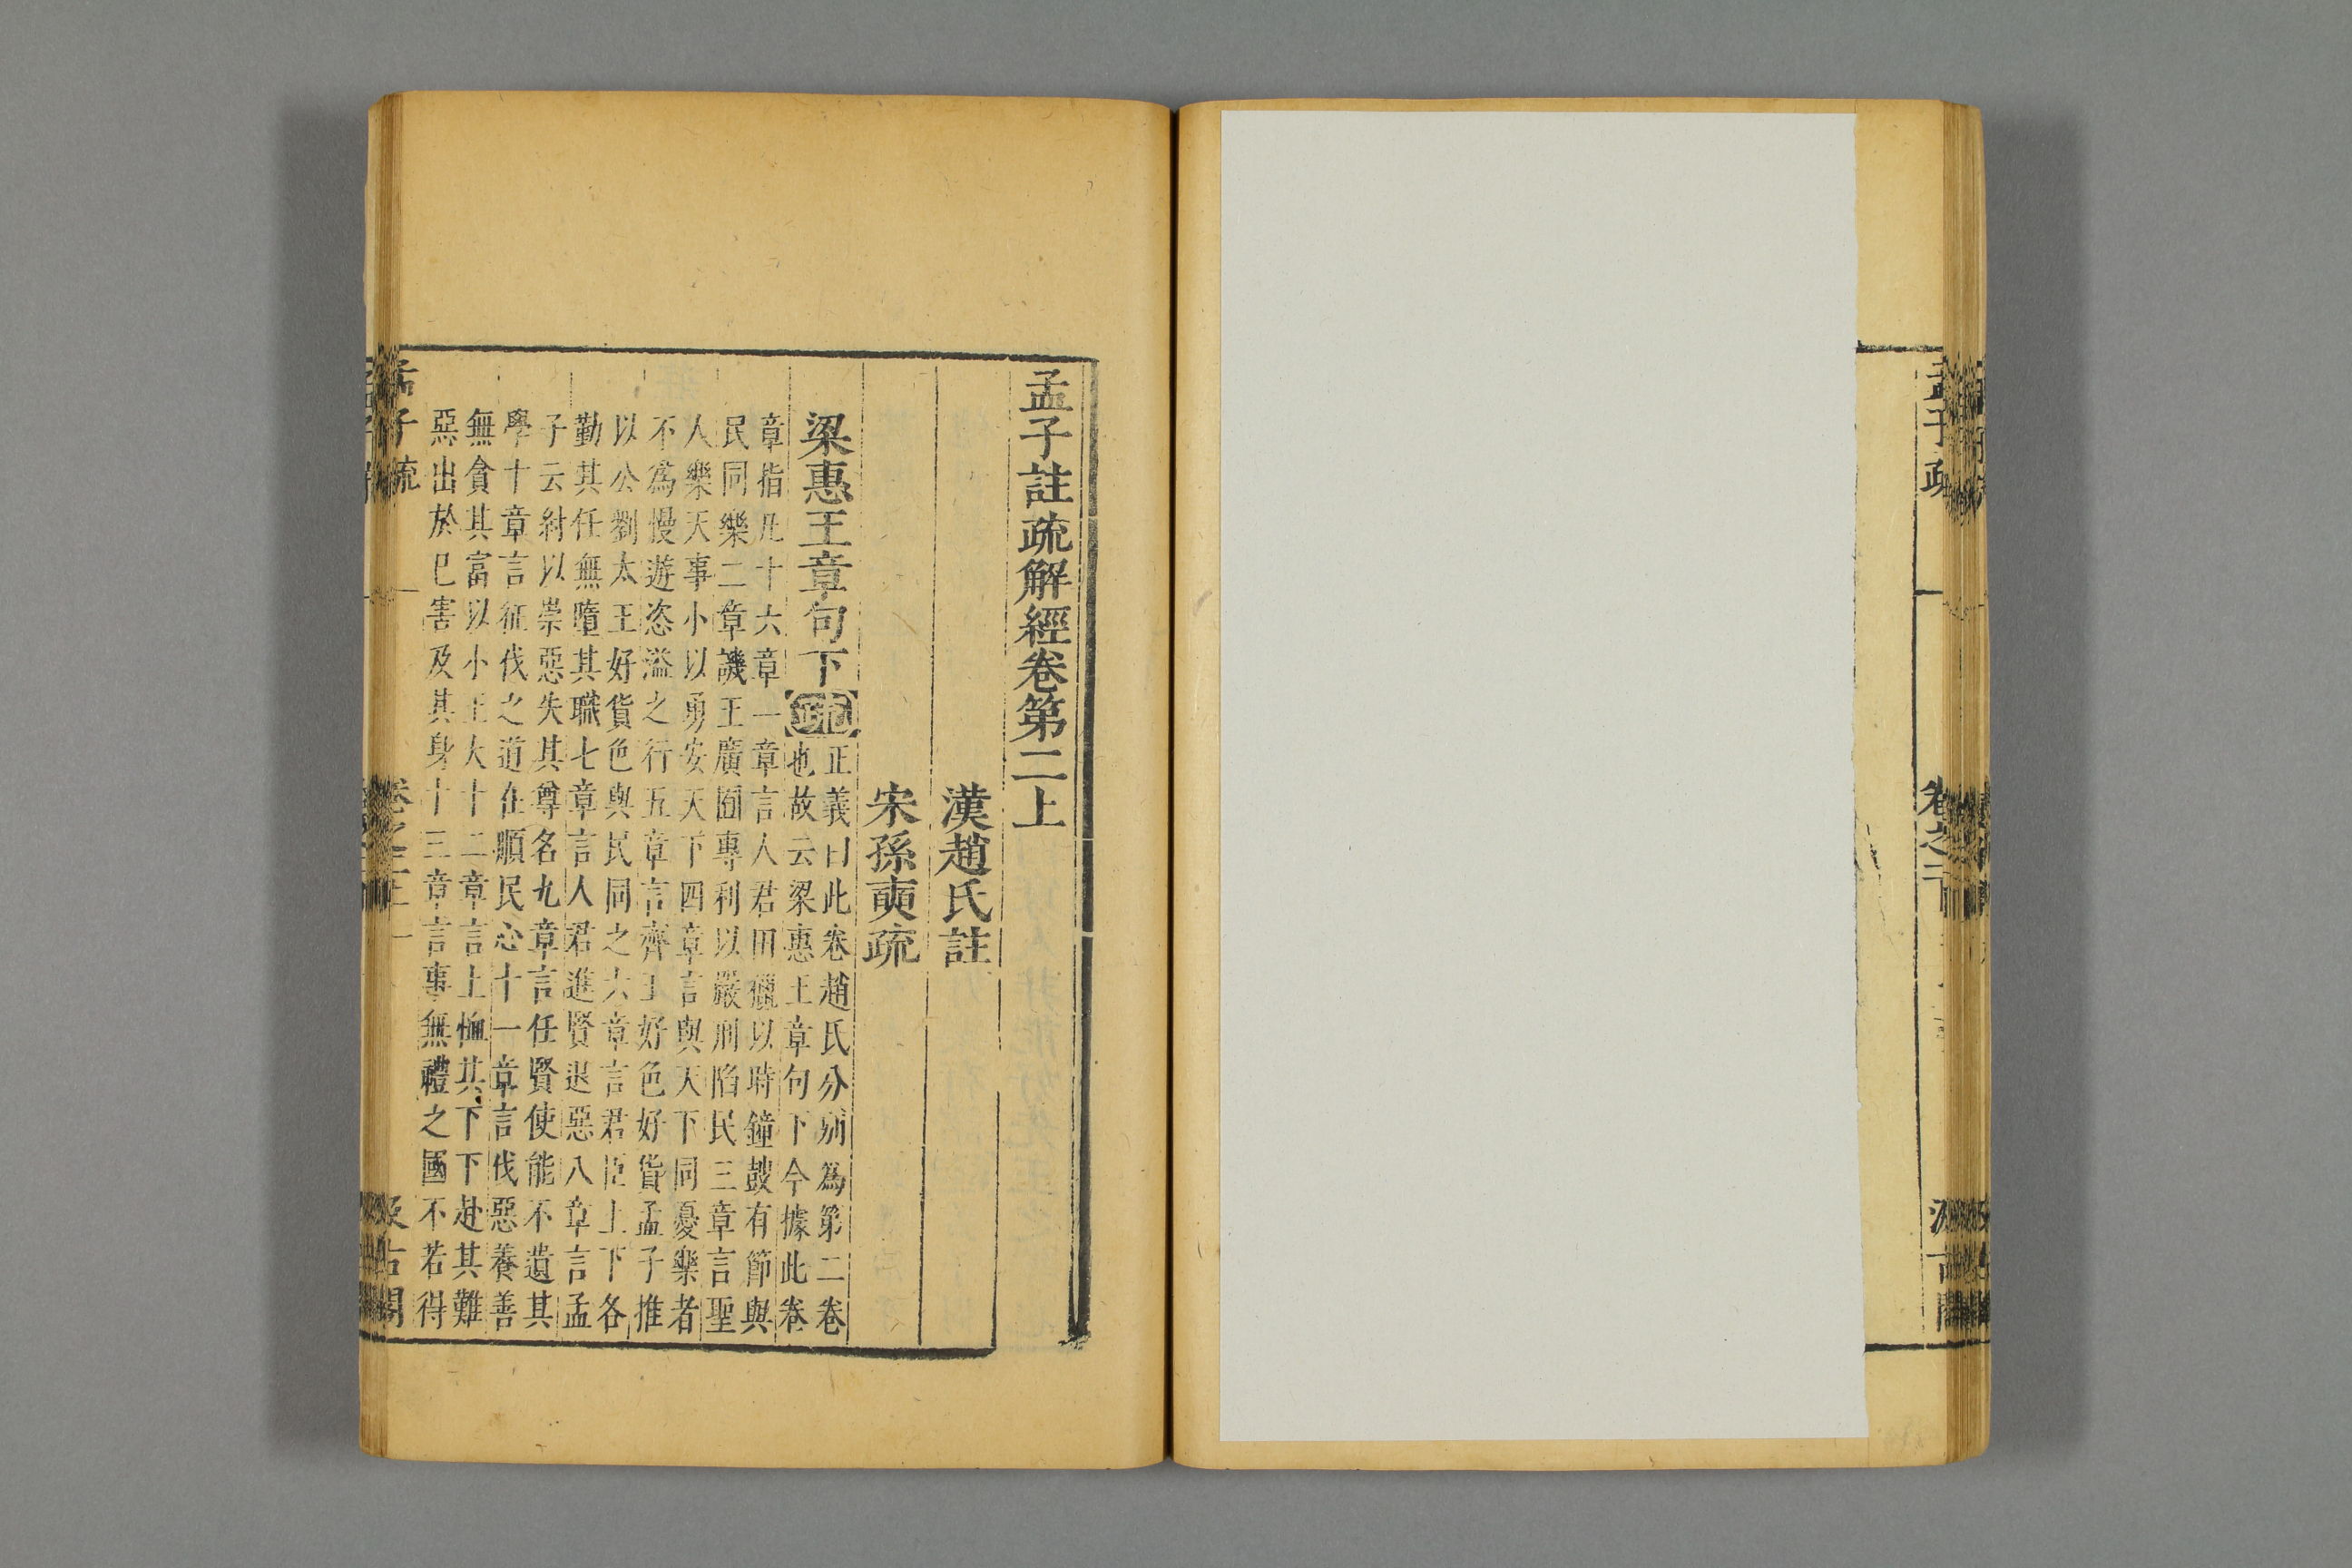 孟子註疏解經卷第二上
漢趙氏註
宋孫奭疏
梁惠王章句下疏正義曰此卷趙氏分別為第二卷
也故云梁惠王章句下今據此卷
章指凡十六章一章言人君田獵以時鐘鼓有節與
民同樂二章譏王廣囿專利以嚴刑陷民三章言聖
人樂天事小以勇安天下四章言與天下同憂樂者
不為慢遊恣溢之行五章言齊王好色好貨孟子推
以公劉太王好貨色與民同之六章言君臣上下各
勤其任無隳其職七章言人君進賢退惡八章言孟
子云紂以崇惡失其尊名九章言任賢使能不遺其
學十章言征伐之道在順民心十一章言伐惡養善
無貪其富以小王大十二章言上恤其下下赴其難
惡出於己害及其身十三章言事無禮之國不若得
孟子疏 卷之二上 一 汲古閣
孟子疏 卷之二